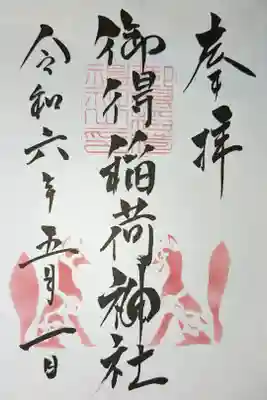 奉拝
御稲荷神社
令和六年五月一日